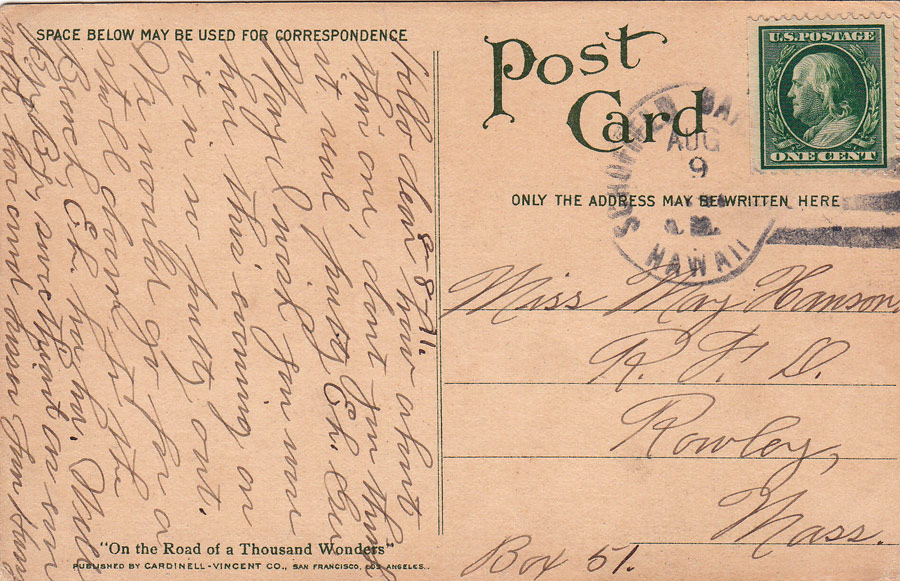 SPACE BELOW MAY BE USED FOR CORRESPONDENCE
8-8-11.
Hello dear how about
this one, dont you think
it real pretty Eh. Gee
May I wish you were
here this evening as
it is so pretty out.
We would go for a
stroll down to the
Beach, Eh. ha ha. Well
and kisses from Harry
"On the Road of a Thousand Wonders"
PUBLISHED BY CARDINELL-VINCENT CO., SAN FRANCISCO, LOS ANGELES.
Post
Card
U.S. POSTAGE
ONE CENT
SCHOFIELD BAR
AUG
9
HAWAII
ONLY THE ADDRESS MAY BE WRITTEN HERE
Miss May Hanson,
R. F. D.
Rowley,
Mass.
Box 51.